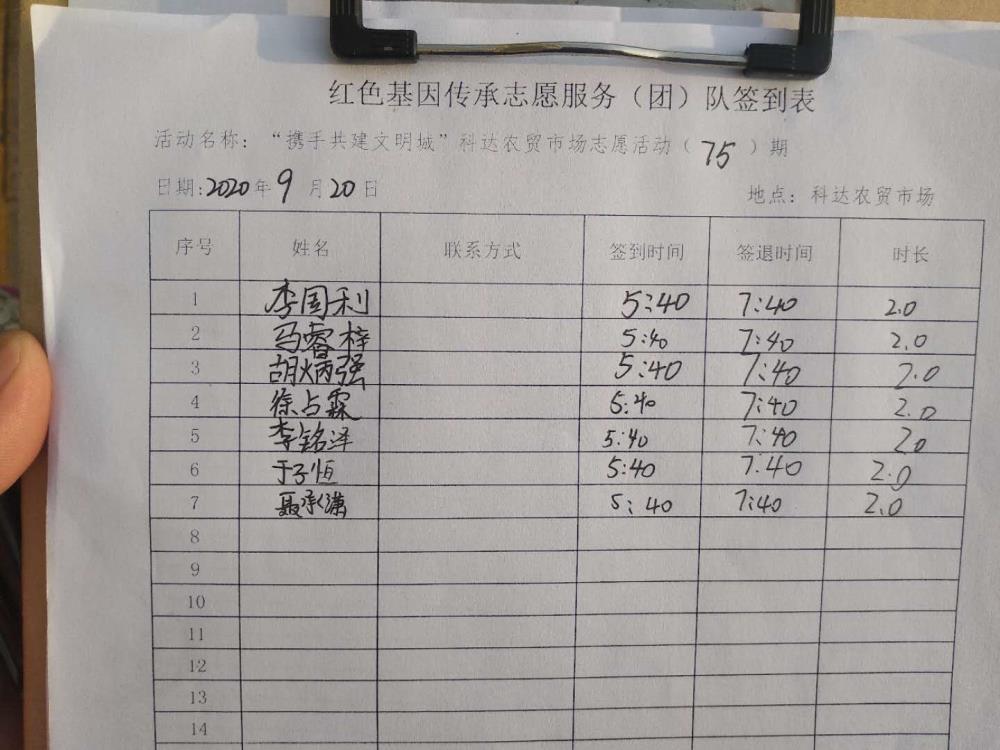 红色基因传承志愿服务（团）队签到表
活动名称：“携手共建文明城”科达农贸市场志愿活动（75）期
日期:2020年9月20日 地点：科达农贸市场
序号 姓名 联系方式 签到时间 签退时间 时长
1 李国利 5:40 7:40 2.0
2 马睿梓 5:40 7:40 2.0
3 胡炳强 5:40 7:40 2.0
4 徐占霖 5:40 7:40 2.0
5 李铭泽 5:40 7:40 20
6 于子恒 5:40 7:40 2.0
7 聂承潇 5:40 7:40 2.0
8
9
10
11
12
13
14